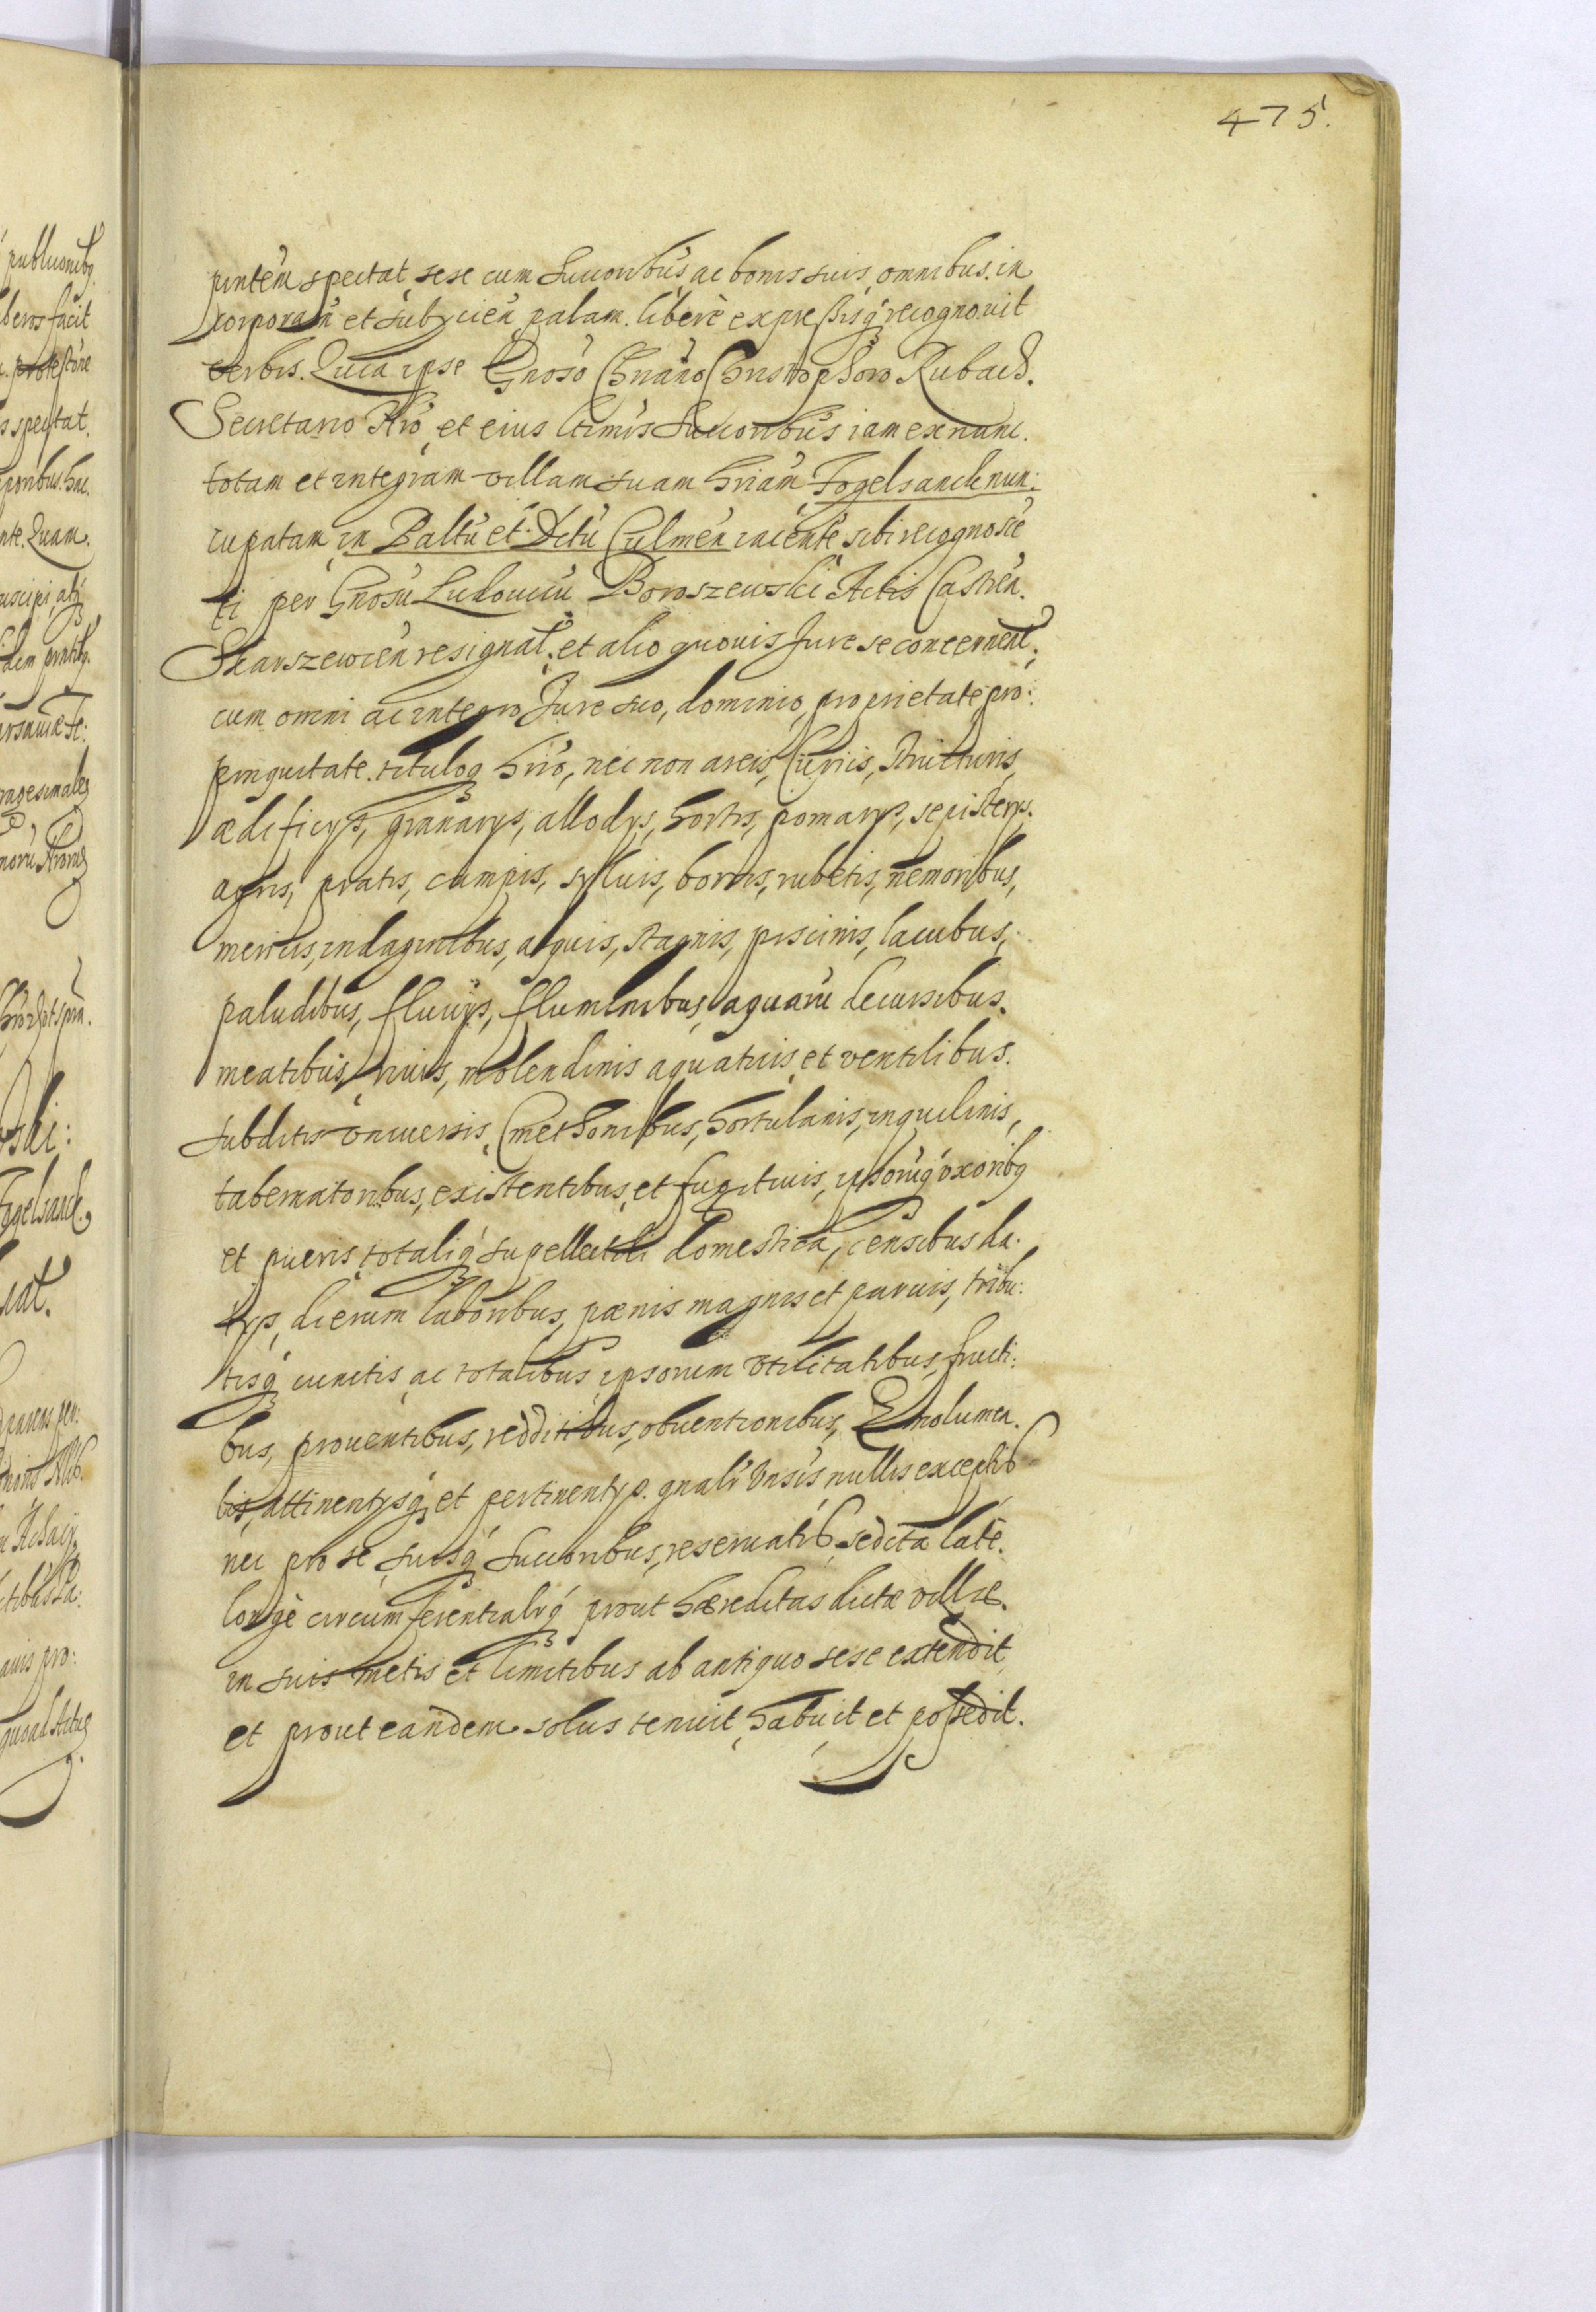 475.
pntem spectat, sese cum Succoribus ac bonis suis omnibus. in
corporan et subycien palam. libere expressisq recognouit
verbis. Quia ipse Gnoso Christophoro Rubach.
Secretario et eius ltimis Succoribus iam ex nunc.
totam et integram villam suam hriam Fogelsanck nun:
cupatam in Paltu et Dctu Culmen iacente sibi recognosce
ti per Gnosu Ludouicu Boroszewski Actis Castren.
Skarszewien resignat. et alio quouis Jure se concernent:
cum omni ac integro Jure suo, dominio, proprietate, pro:
pinguitate. tituloq hrio, nec non areis, Curiis, structuris,
aedificys, granarys, allodys, hortis, pomarys, sepisterys.
agris, pratis, campis, syluis, borris, rubetis, nemoribus,
mericis, indaginibus, aquis, stagnis, piscinis, lacubus,
paludibus, fluuys, fluminibus, aquaru decursibus.
meatibus, riuis, molendinis aquaticis, et ventilibus.
Subditis vniuersis, Cmethonibus, hortulanis, inquilinis,
tabernatoribus, existentibus, et fugitiuis, ipsoruq vxoribq
et pueris, totaliq supellectili domestica, censibus da.
tys, dierum laboribus, paenis magnis et paruis, tribu:
tisq cunctis, ac totalibus ipsorum vtilitatibus, fructi:
bus, prouentibus, redditibus, obuentionibus, Emolumen.
tis, attinentysq, et pertinentys. gnalr vnsis nullis exceptis
nec pro se, suisq Succoribus, reseruatis, sed ita late.
longe circumferentialrq prout haereditas dictae villae.
in suis metis et limitibus ab antiquo sese extendit,
et prout eandem solus tenuit, habuit et possedit.